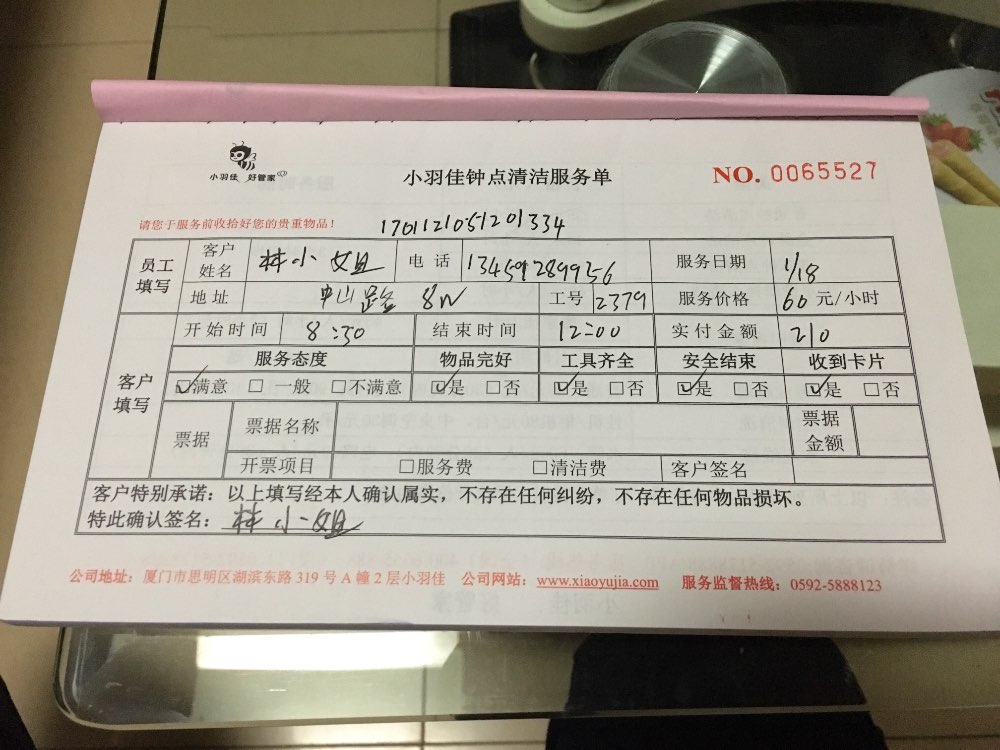 小羽佳 好管家
小羽佳钟点清洁服务单
NO. 0065527
请您于服务前收拾好您的贵重物品!
1701121051201334
员工填写 客户姓名 林小姐 电话 13459289956 服务日期 1/18
地址 中山路 8N 工号 2379 服务价格 60 元/小时
客户填写 开始时间 8:30 结束时间 12:00 实付金额 210
服务态度 物品完好 工具齐全 安全结束 收到卡片
☑满意 □ 一般 □不满意 ☑是 □否 ☑是 □否 ☑是 □否 ☑是 □否
票据 票据名称 票据金额
开票项目 □服务费 □清洁费 客户签名
客户特别承诺：以上填写经本人确认属实，不存在任何纠纷，不存在任何物品损坏。
特此确认签名：林小姐
公司地址：厦门市思明区湖滨东路 319 号 A 幢 2 层小羽佳 公司网站：www.xiaoyujia.com 服务监督热线：0592-5888123